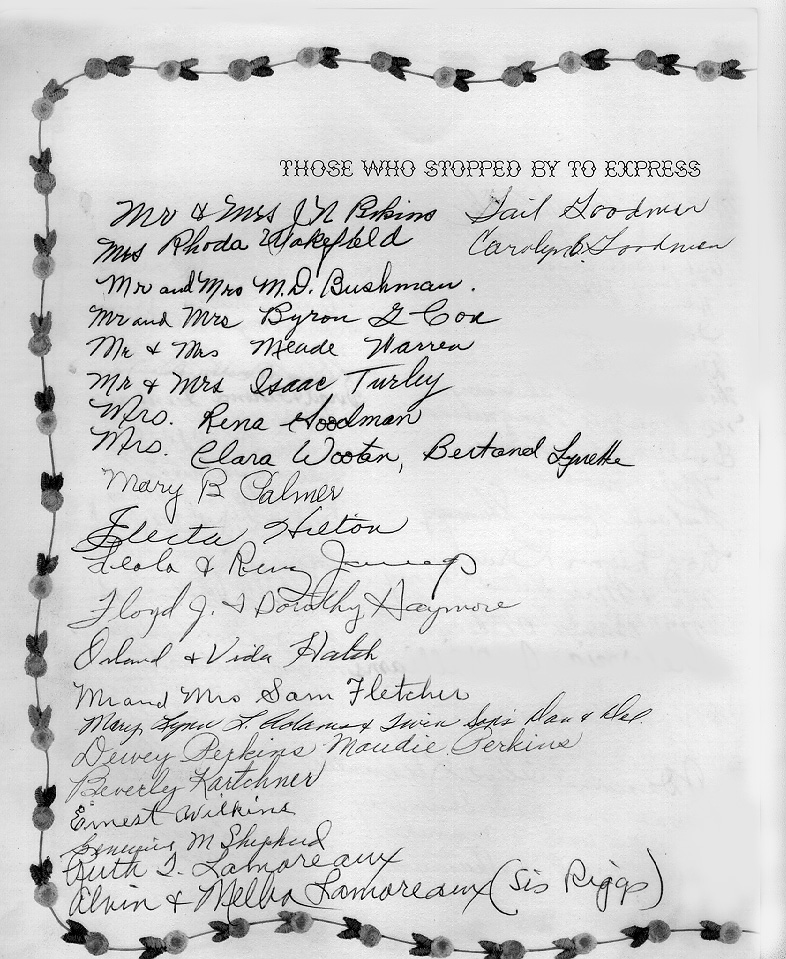 THOSE WHO STOPPED BY TO EXPRESS
Mr & Mrs J N Perkins Gail Goodman
Mrs Rhoda Wakefield Carolyn Goodman
Mr and Mrs M.D. Bushman.
Mr and Mrs Byron G Cox
Mr & Mrs Meade Warren
Mr & Mrs Isaac Turley
Mrs. Rena Goodman
Mrs. Clara Wootan, Bertand Lynette
Mary B Palmer
Electa Hilton
Leola &
Floyd J. & Dorothy Haymore
Orland & Vida Hatch
Mr and Mrs Sam Fletcher
Mary Lynn L. Adams & Twin Sons Dan & Del.
Dewey Perkins Maudie Perkins
Beverly Kartchner
Ernest Wilkins
Genevieve M Shepherd
Ruth I. Lamoreaux
Alvin & Melba Lamoreaux (Sis Riggs)